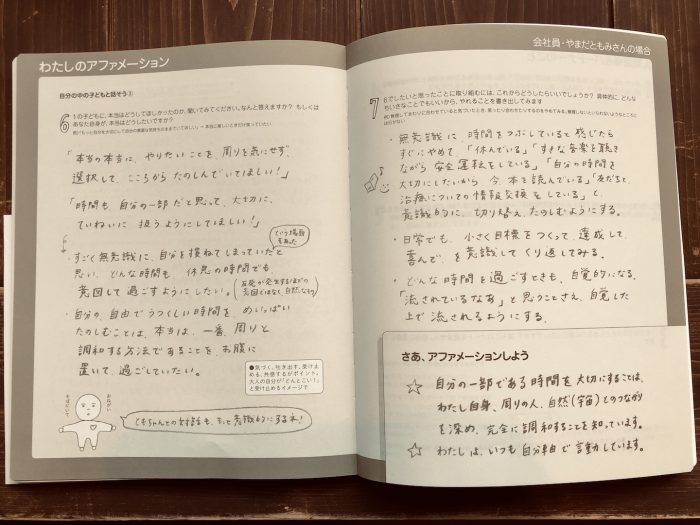 わたしのアファメーション
自分の中の子どもと話そう③
6
1の子どもに、本当はどうしてほしかったのか、聞いてみてください。なんと答えますか？ もしくは
あなた自身が、本当はどうしたいですか？
「本当の本当に、やりたいことを、周りを気にせず、
選択して、こころから たのしんでいてほしい！」
「時間も 自分の一部だと思って、大切に、
ていねいに 扱うようにしてほしい！」
という場面もあった
・すごく無意識に、自分を損ねてしまっていたと
思い、どんな時間も、休息の時間でも、
意図して過ごすようにしたい。
(反発が発生するほどの意図ではなく、自然なもの)
・自分の、自由でうつくしい時間を、めいっぱい
たのしむことは、本当は、一番、周りと
調和する方法であることを、お腹に
置いて、過ごしていたい。
●気づく、吐き出す、受け止
める、共感するがポイント。
大人の自分が「どんとこい！」
と受け止めるイメージで
ともちゃんとの対話も、もっと意識的にするネ！
会社員・やまだともみさんの場合
7
6でしたいと思ったことに取り組むには、これからどうしたらいいでしょうか？ 具体的に、どんな
ちいさなことでもいいから、やれることを書き出してみます
・無意識に 時間をつぶしていると 感じたら
すぐにやめて、「休んでいる」「すきな音楽を聴き
ながら 安全運転をしている」「自分の時間を
大切にしたいから 今、本を読んでいる」「友だちと、
治療についての情報交換をしている」と
意識的に、切り替え、たのしむようにする。
・日常でも、小さく目標をつくって、達成して、
喜んで、を意識して くり返してみる。
・どんな時間を過ごすときも、自覚的になる。
「流されているなあ」と思うことさえ、自覚した
上で流されるようにする。
さあ、アファメーションしよう
☆ 自分の一部である時間を大切にすることは、
わたし自身、周りの人、自然（宇宙）とのつながり
を深め、完全に調和することを知っています。
☆ わたしは、いつも自分軸で言動しています。